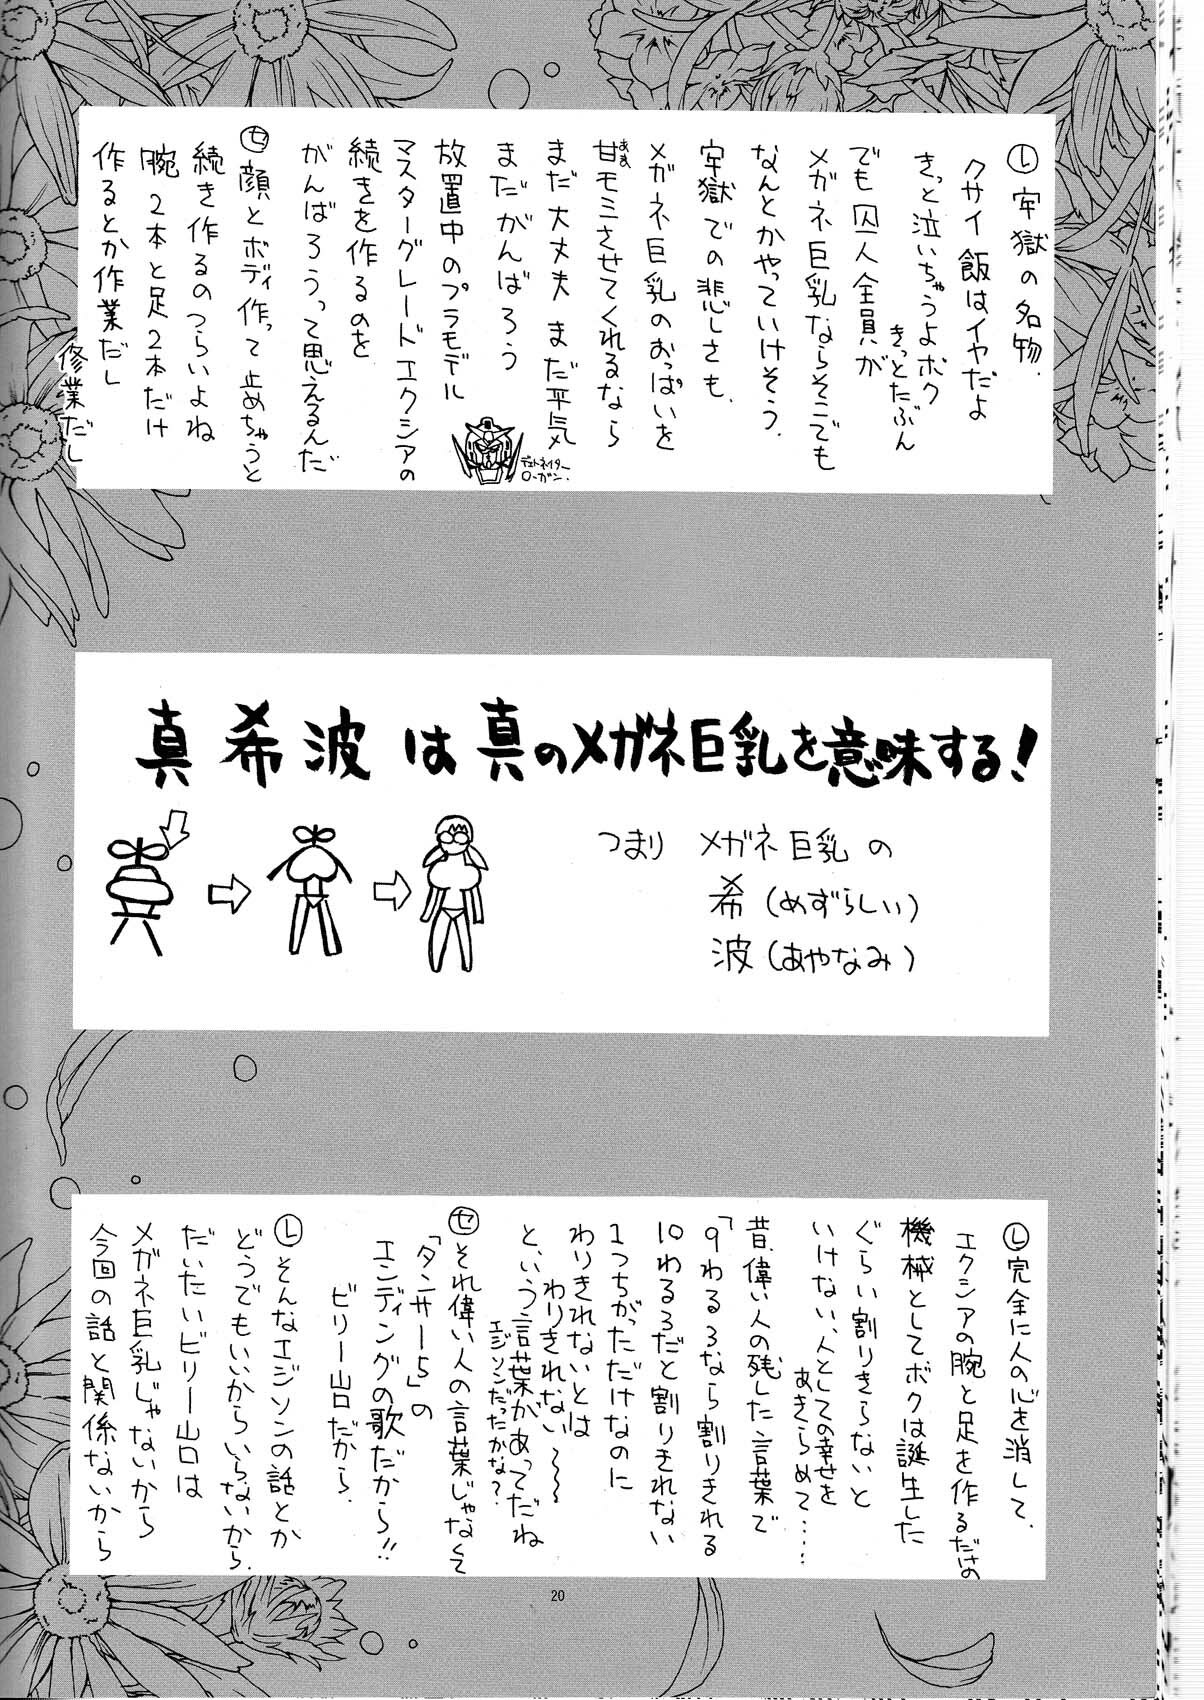 Ⓛ牢獄の名物、
クサイ飯はイヤだよ
きっと泣いちゃうよボク
きっとたぶん
でも囚人全員が
メガネ巨乳ならそこでも
なんとかやっていけそう、
牢獄での悲しさも、
メガネ巨乳のおっぱいを
甘モミさせてくれるなら
あま
まだ大丈夫まだ平気
まだがんばろう
放置中のプラモデル
マスターグレードエクシアの
続きを作るのを
がんばろうって思えるんだ
ローガン.
㋝顔とボディ作って止めちゃうと
続き作るのつらいよね
腕2本と足2本だけ
作るとか作業だし
修業だし
真希波は真のメガネ巨乳を意味する!
つまり メガネ巨乳の
希(めずらしい)
波(あやなみ)
Ⓛ完全に人の心を消して、
エクシアの腕と足を作るだけの
機械としてボクは誕生した
ぐらい割りきらないと
いけない、人としての幸せを
あきらめて……
昔、偉い人の残した言葉で
「9わる3なら割りきれる
10わる3だと割りきれない
1つちがっただけなのに
わりきれないとは
わりきれない~~
という言葉があってだね
エジソンだったかな?
㋝それ偉い人の言葉じゃなくて
「タンサー5」の
エンディングの歌だから!!
ビリー山口だから、
Ⓛそんなエジソンの話とか
どうでもいいからいらないから、
だいたいビリー山口は
メガネ巨乳じゃないから
今回の話と関係ないから
20